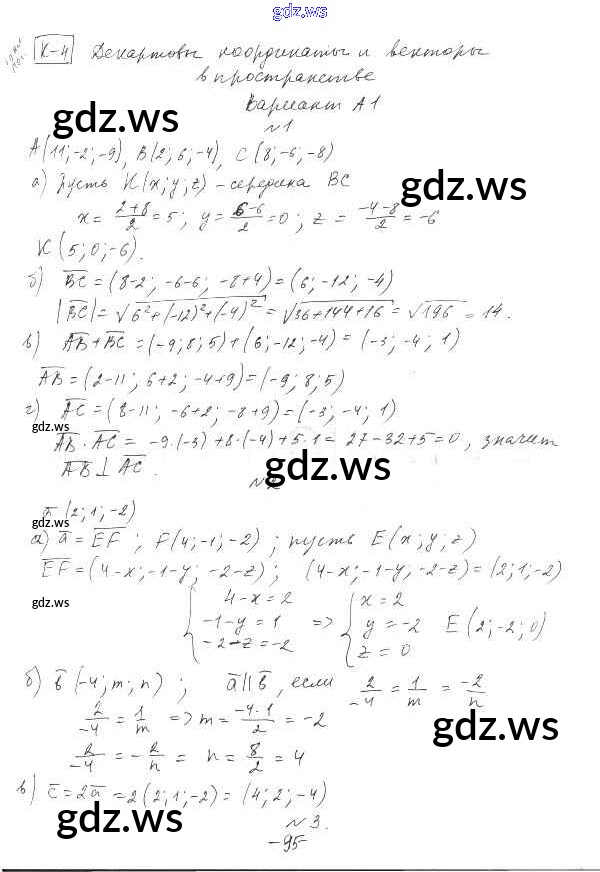 gdz.ws
К-4 Декартовы координаты и векторы
в пространстве
Вариант А1
gdz.ws gdz.ws
№1
A(11;-2;-9), B(2;6;-4), C(8;-6;-8)
а) Пусть K(x;y;z) - середина BC
x = (2+8)/2 = 5; y = (6-6)/2 = 0; z = (-4-8)/2 = -6
K(5;0;-6).
б) BC = (8-2; -6-6; -8+4) = (6; -12; -4)
|BC| = √(6²+(-12)²+(-4)²) = √(36+144+16) = √196 = 14.
в) AB+BC = (-9;8;5)+(6;-12;-4) = (-3;-4;1)
AB = (2-11; 6+2; -4+9) = (-9;8;5)
г) AC = (8-11; -6+2; -8+9) = (-3;-4;1)
gdz.ws
AB·AC = -9·(-3)+8·(-4)+5·1 = 27-32+5 = 0, значит
AB ⊥ AC.
gdz.ws gdz.ws
№2
a(2;1;-2)
а) a = EF; F(4;-1;-2); пусть E(x;y;z)
EF = (4-x; -1-y; -2-z); (4-x; -1-y; -2-z) = (2;1;-2)
gdz.ws
{ 4-x=2 { x=2
{ -1-y=1 => { y=-2 E(2;-2;0)
{ -2-z=-2 { z=0
б) b(-4;m;n); a||b, если 2/-4 = 1/m = -2/n
2/-4 = 1/m => m = (-4·1)/2 = -2
gdz.ws
2/-4 = -2/n = n = 8/2 = 4
в) c = 2a = 2(2;1;-2) = (4;2;-4)
gdz.ws gdz.ws
№3.
-95-